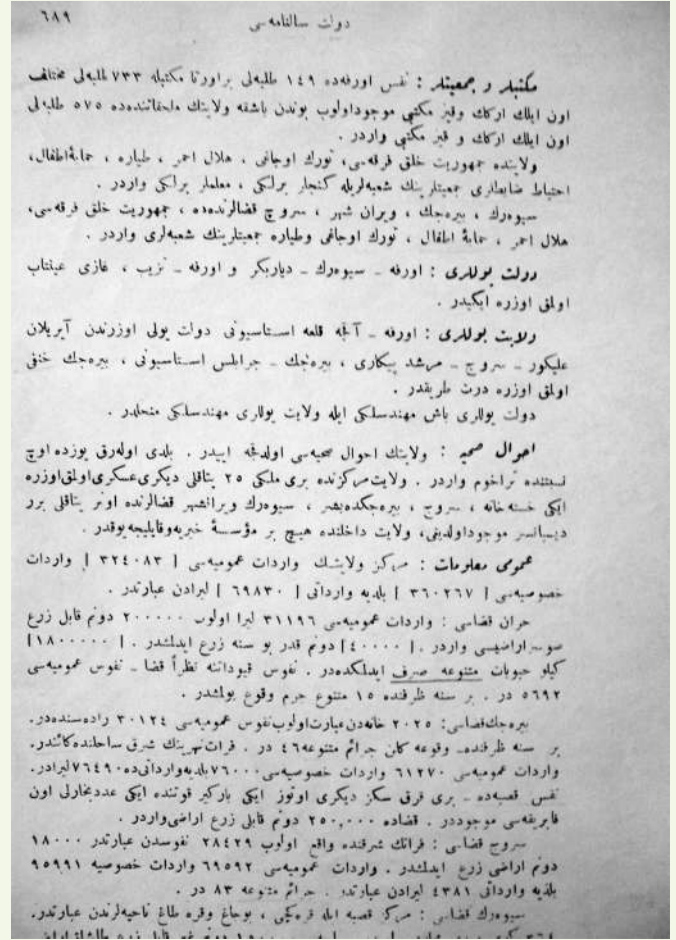 ٦٨٩
دولت سالنامه‌سى
مكتبلر و جمعيتلر : نفس اورفه‌ده ١٤٩ طلبه‌لى براورتا مكتبله ٧٣٣ طلبه‌لى مختلف
اون ايلك اركك وقيز مكتبى موجوداولوب بوندن باشقه ولايتك ملحقاتنده‌ده ٥٧٥ طلبه‌لى
اون ايلك اركك و قيز مكتبى واردر .
ولايتده جمهوريت خلق فرقه‌سى، تورك اوجاغى ، هلال احمر ، طياره ، حمايۀ اطفال،
احتياط ضابطلرى جمعيتلرينك شعبه‌لريله كنجلر برلكى ، معلملر برلكى واردر .
سيوه‌رك ، بيره‌جك ، ويران شهر ، سروج قضالرنده‌ده ، جمهوريت خلق فرقه‌سى،
هلال احمر ، حمايۀ اطفال ، تورك اوجاغى وطياره جمعيتلرينك شعبه‌لرى واردر .
دولت يوللرى : اورفه ـ سيوه‌رك ـ دياربكر و اورفه ـ نزيب ، غازى عينتاب
اولمق اوزره ايكيدر .
ولايت يوللرى : اورفه ـ آقچه قلعه استاسيونى دولت يولى اوزرندن آيريلان
عليكور ـ سروج ـ مرشد پيكارى ، بيره‌جك ـ جرابلس استاسيونى ، بيره‌جك خلفتى
اولمق اوزره درت طريقدر .
دولت يوللرى باش مهندسلكى ايله ولايت يوللرى مهندسلكى منحلدر .
احوال صحيه : ولايتك احوال صحيه‌سى اولدقجه اييدر . بلدى اوله‌رق يوزده اوچ
نسبتنده تراخوم واردر . ولايت مركزنده برى ملكى ٢٥ يتاقلى ديكرى عسكرى اولمق اوزره
ايكى خسته‌خانه ، سروج ، بيره‌جكده بشر ، سيوه‌رك ويرانشهر قضالرنده اونر يتاقلى برر
ديسپانسر موجود اولديغى، ولايت داخلنده هيچ بر مؤسسۀ خيريه وقاپليجه يوقدر .
عمومى معلومات : مركز ولايتك واردات عموميه‌سى | ٣٢٤٠٨٣ | واردات
خصوصيه‌سى | ٣٦٠٢٦٧ | بلديه وارداتى | ٦٩٨٣٠ | ليرادن عبارتدر .
حران قضاسى : واردات عموميه‌سى ٣١١٩٦ ليرا اولوب ٢٠٠٠٠٠ دونم قابل زرع
صوسز اراضيسى واردر . | ٤٠٠٠٠ | دونم قدر بو سنه زرع ايدلمشدر . | ١٨٠٠٠٠٠ |
كيلو حبوبات متنوعه صرف ايدلمكده‌در . نفوس قيوداتنه نظراً قضا ـ نفوس عموميه‌سى
٥٦٩٢ در . بر سنه ظرفنده ١٥ متنوع جرم وقوع بولمشدر .
بيره‌جك قضاسى : ٢٠٢٥ خانه‌دن عبارت اولوب نفوس عموميه‌سى ٣٠١٢٤ راده‌سنده‌در.
بر سنه ظرفنده وقوعه كلن جرائم متنوعه ٤٦ در . فرات نهرينك شرق ساحلنده كائندر.
واردات عموميه‌سى ٦١٢٧٠ واردات خصوصيه‌سى ٧٦٠٠٠ بلديه وارداتى ده ٧٦٤٩٠ ليرادر.
نفس قصبه‌ده ـ برى قرق سكز ديكرى اوتوز ايكى باركير قوتنده ايكى عدد بخارلى اون
فابريقه‌سى موجوددر . قضاده ٢٥٠,٠٠٠ دونم قابل زرع اراضى واردر .
سروج قضاسى : فراتك شرقنده واقع اولوب ٢٨٤٢٩ نفوسدن عبارتدر ١٨٠٠٠
دونم اراضى زرع ايدلمشدر . واردات عموميه‌سى ٦٩٥٩٢ واردات خصوصيه ٩٥٩٩١
بلديه وارداتى ٤٣٨١ ليرادن عبارتدر . جرائم متنوعه ٨٣ در .
سيوه‌رك قضاسى : مركز قصبه ايله قره‌كچى ، بوجاغ وقره طاغ ناحيه‌لرندن عبارتدر.